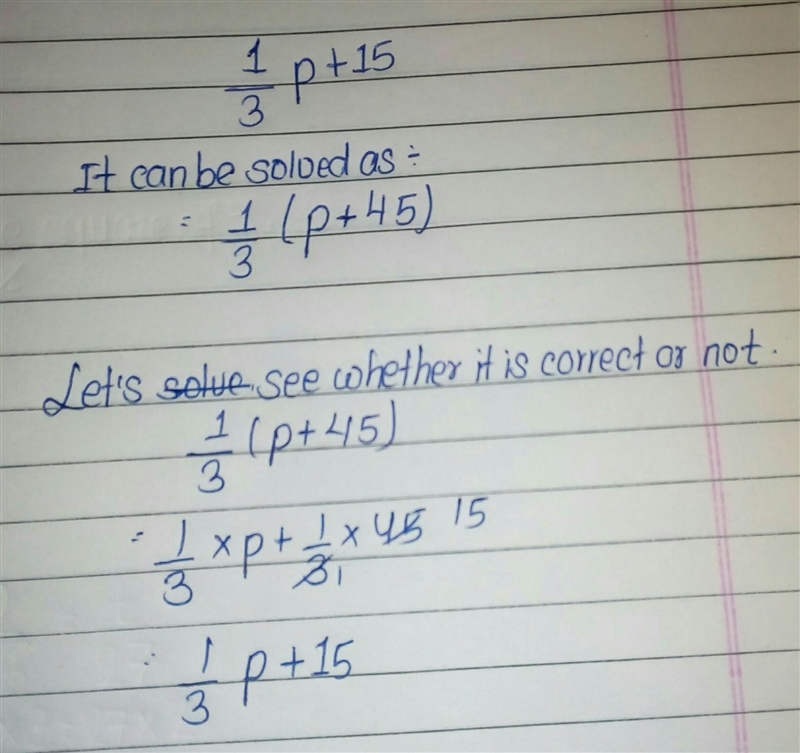 1/3 p+15
It can be solved as ÷
= 1/3 (p+45)
Let's solve. see whether it is correct or not.
1/3 (p+45)
= 1/3 × p + 1/3 1 × 45 15
: 1/3 p+15